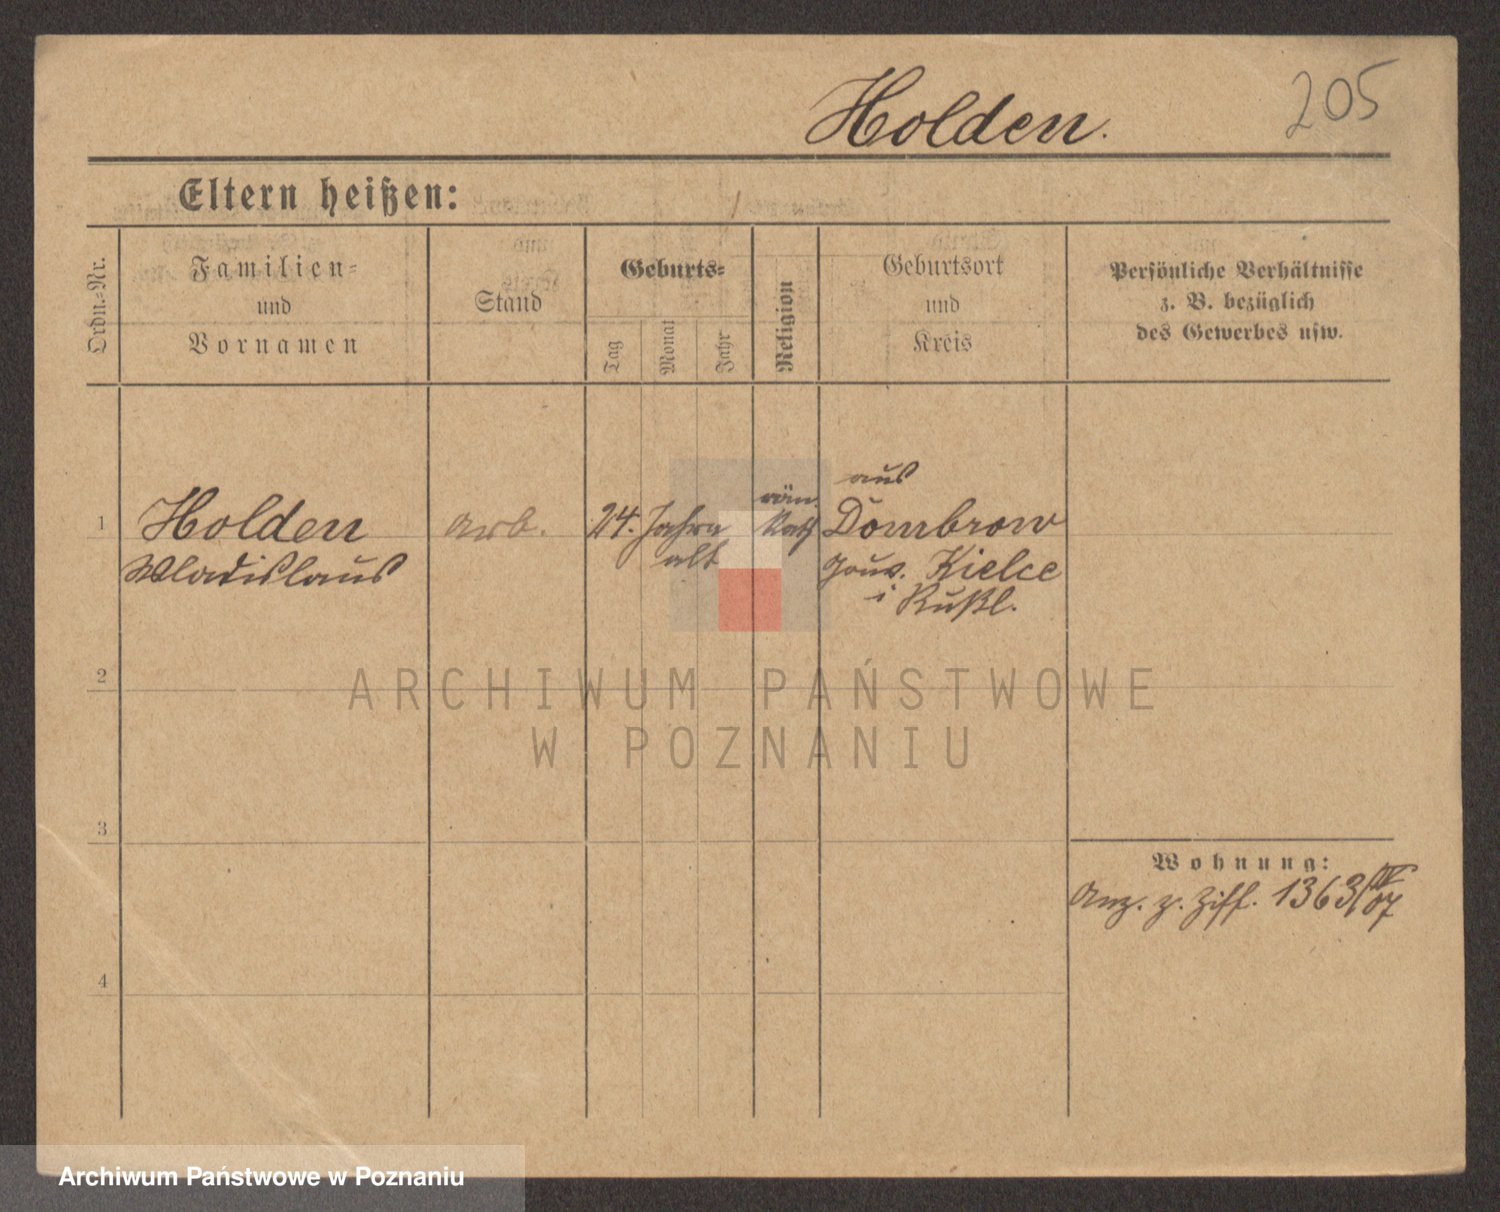 Holden.
205
Eltern heißen:
Ordn.-Nr.
Familien-
und
Vornamen
Stand
Geburts-
Tag
Monat
Jahr
Religion
Geburtsort
und
Kreis
Persönliche Verhältnisse
z. B. bezüglich
des Gewerbes usw.
1
Holden
Wladislaus
Arb.
24. Jahre
alt
röm.
Kath
aus
Dombrow
Gouv. Kielce
i Rußl.
2
ARCHIWUM PAŃSTWOWE
W POZNANIU
3
Wohnung:
Anz. z. Ziff. 1363/IV 07
4
Archiwum Państwowe w Poznaniu